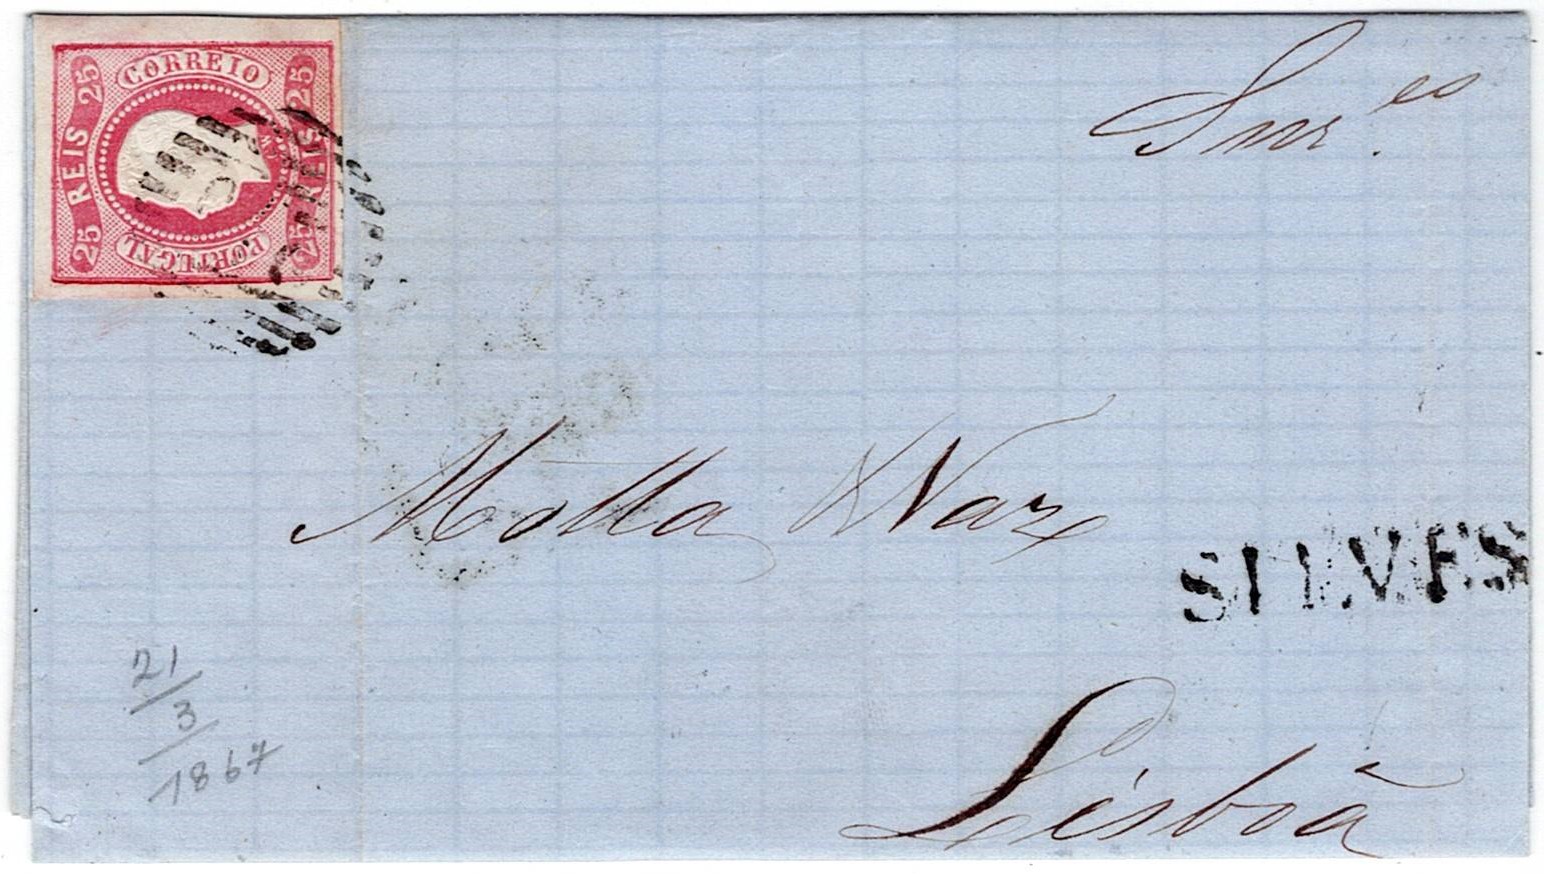 CORREIO
25 REIS 25
25 REIS 25
PORTUGAL
Snr.es
Motta & Vaz
SILVES
Lisboa
21
3
1867